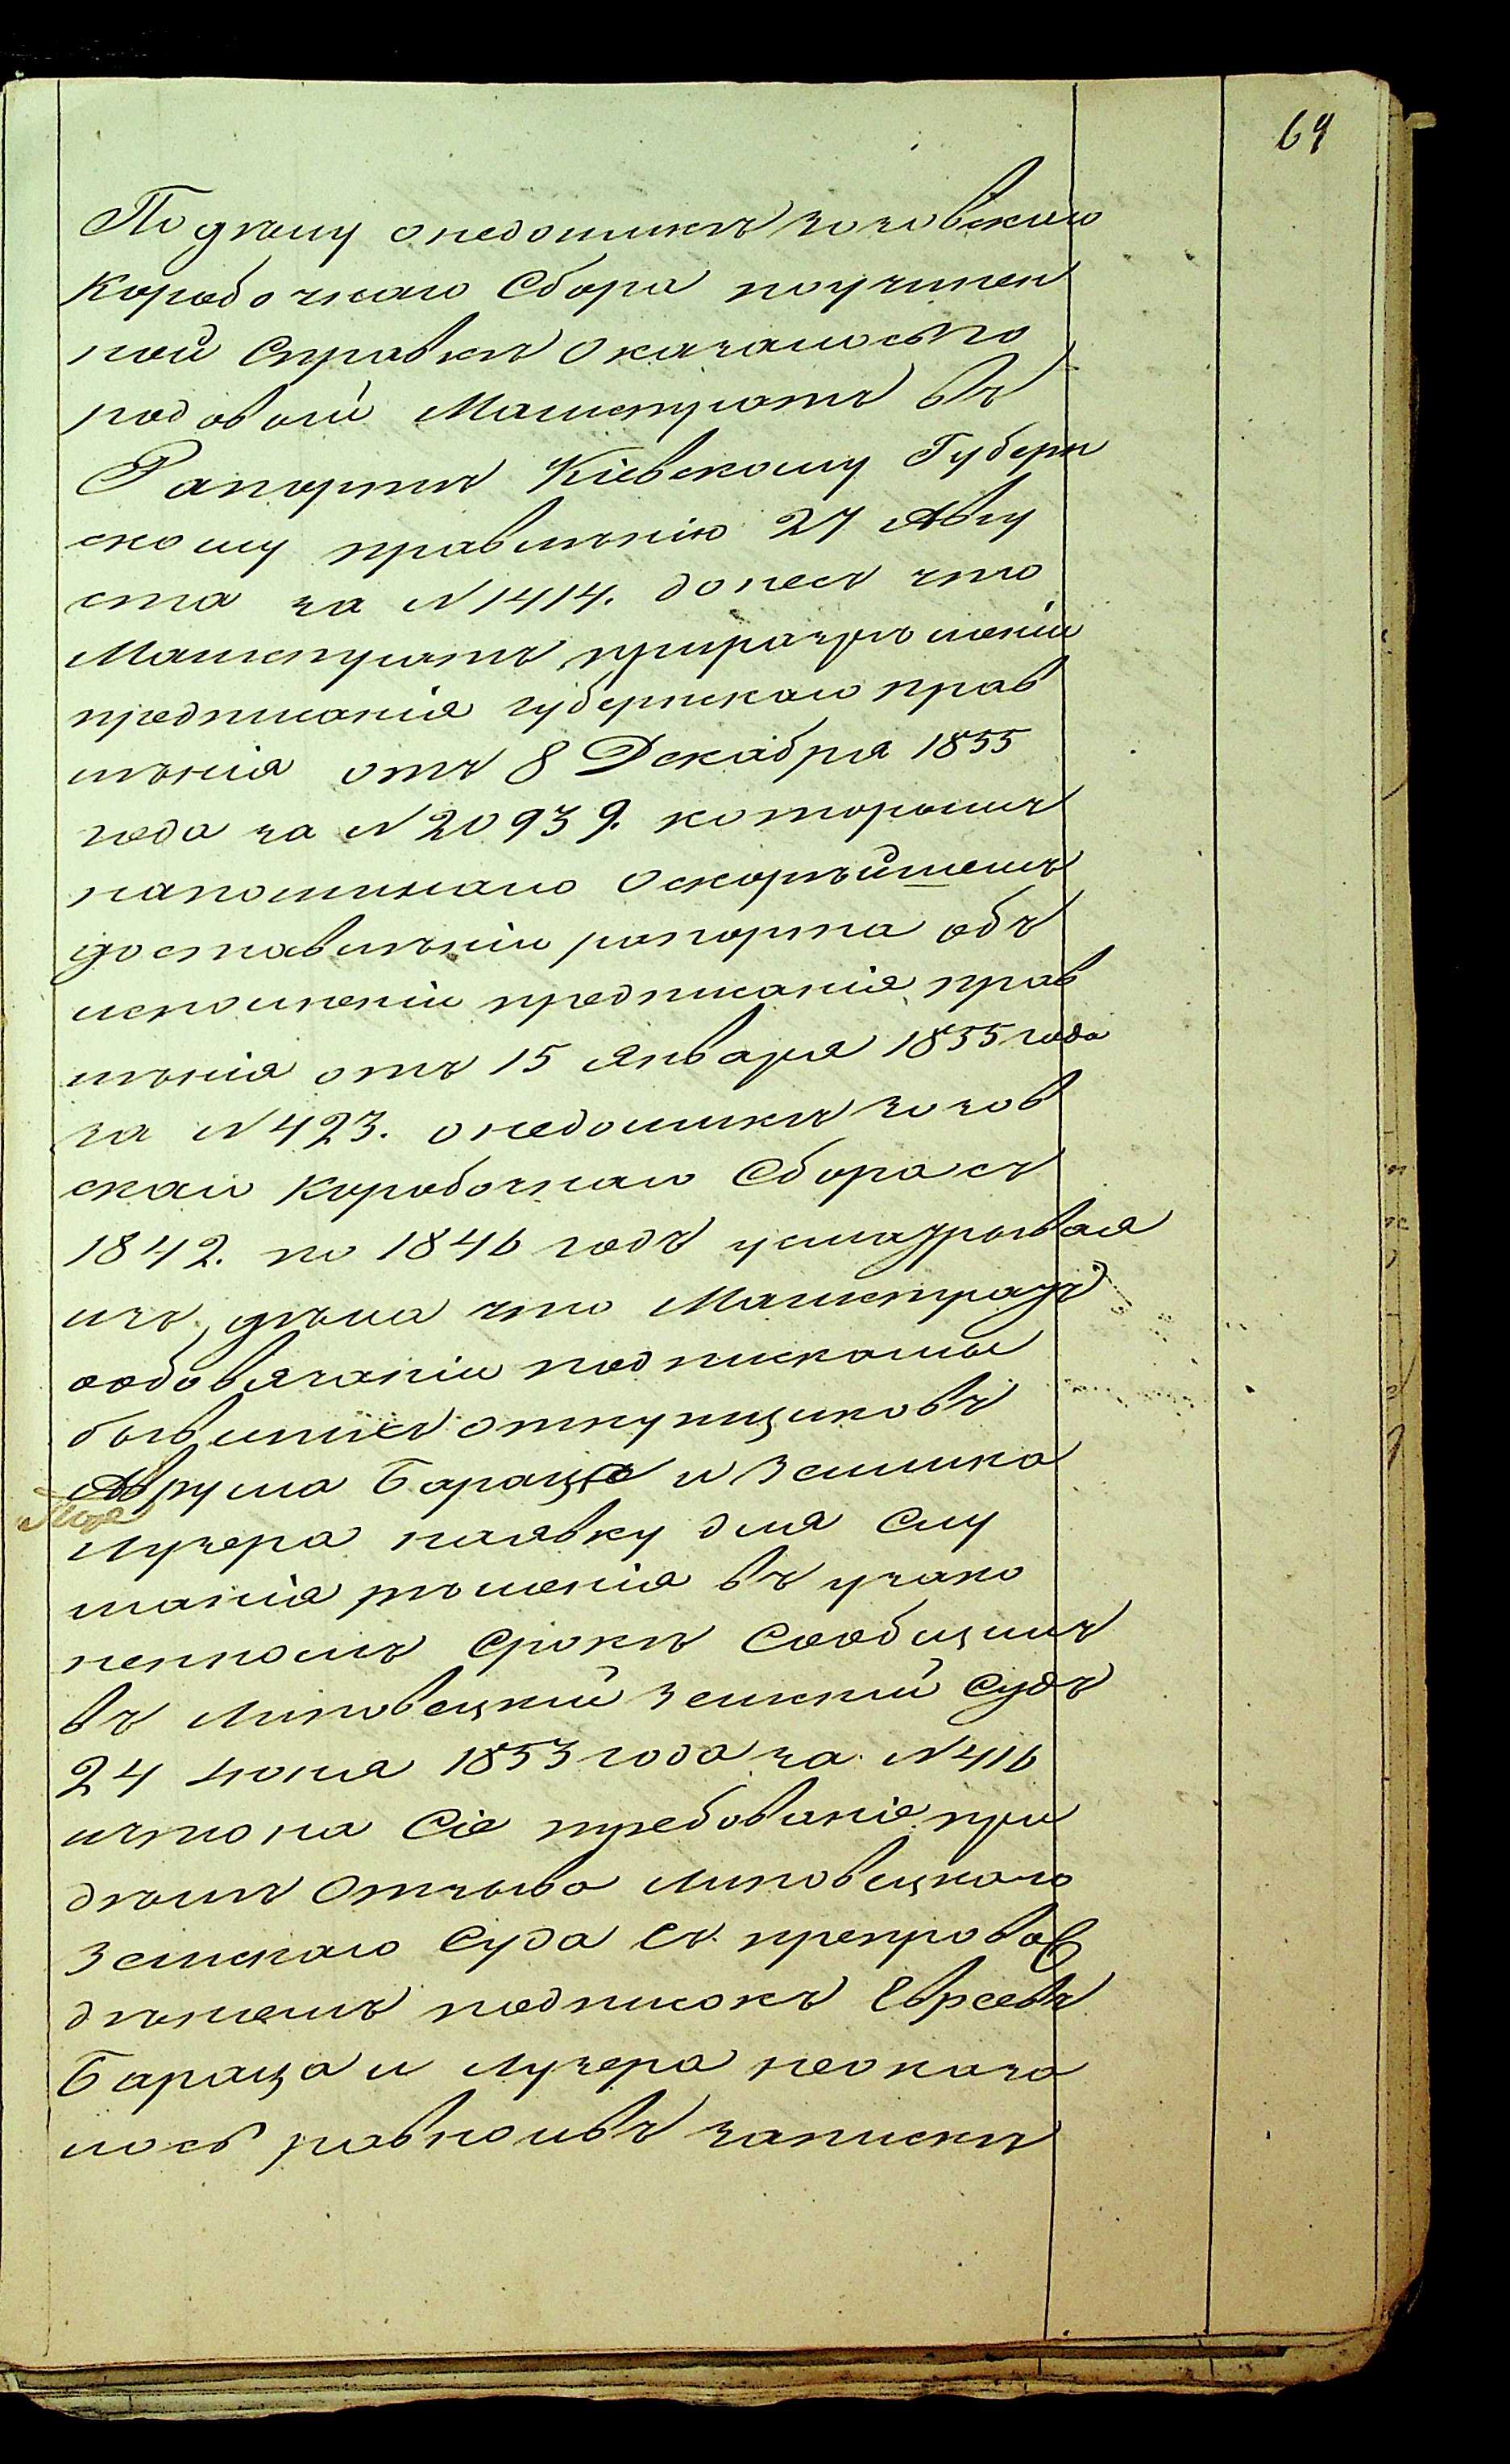 64
По делу о недоимкѣ зозовского
Коробочнаго Сбора поучинен
ной Справкѣ Оказалось по
родовой Магистратъ въ
Рапортѣ Кіевскому Губерн
скому правленію 27 Авгу
ста за N 1414. донесъ что
Магистратъ приразрѣшеніи
предписанія губернскаго прав
лѣнія отъ 8 Декабря 1855
года за N 20939. которымъ
напоминало Оскорѣйшемъ
доставлѣніи рапорта объ
исполненіи предписанія прав
лѣнія отъ 15 Января 1855 года
за N 423. о недоимкѣ зозов
скаго Коробочнаго Сбора съ
1842. по 1846 годъ усматривая
изъ дѣла что Магистратъ
ообовязаніи подписками
бывшихъ откупщиковъ
Аврума Бараца и Зейлика
Лузера наявку для Слу
шанія рѣшенія въ узако
ненномъ Срокѣ Сообщилъ
въ Липовецкий Земский Судъ
24 Іюня 1853 года за N 416
ичто на Сіе требованіе при
дѣлѣ Отзыва Липовецкаго
Земскаго Суда Съ препровож
дѣніемъ подписокъ Евреевъ
Бараца и Лузера неоказа
лось равно ивъ запискѣ